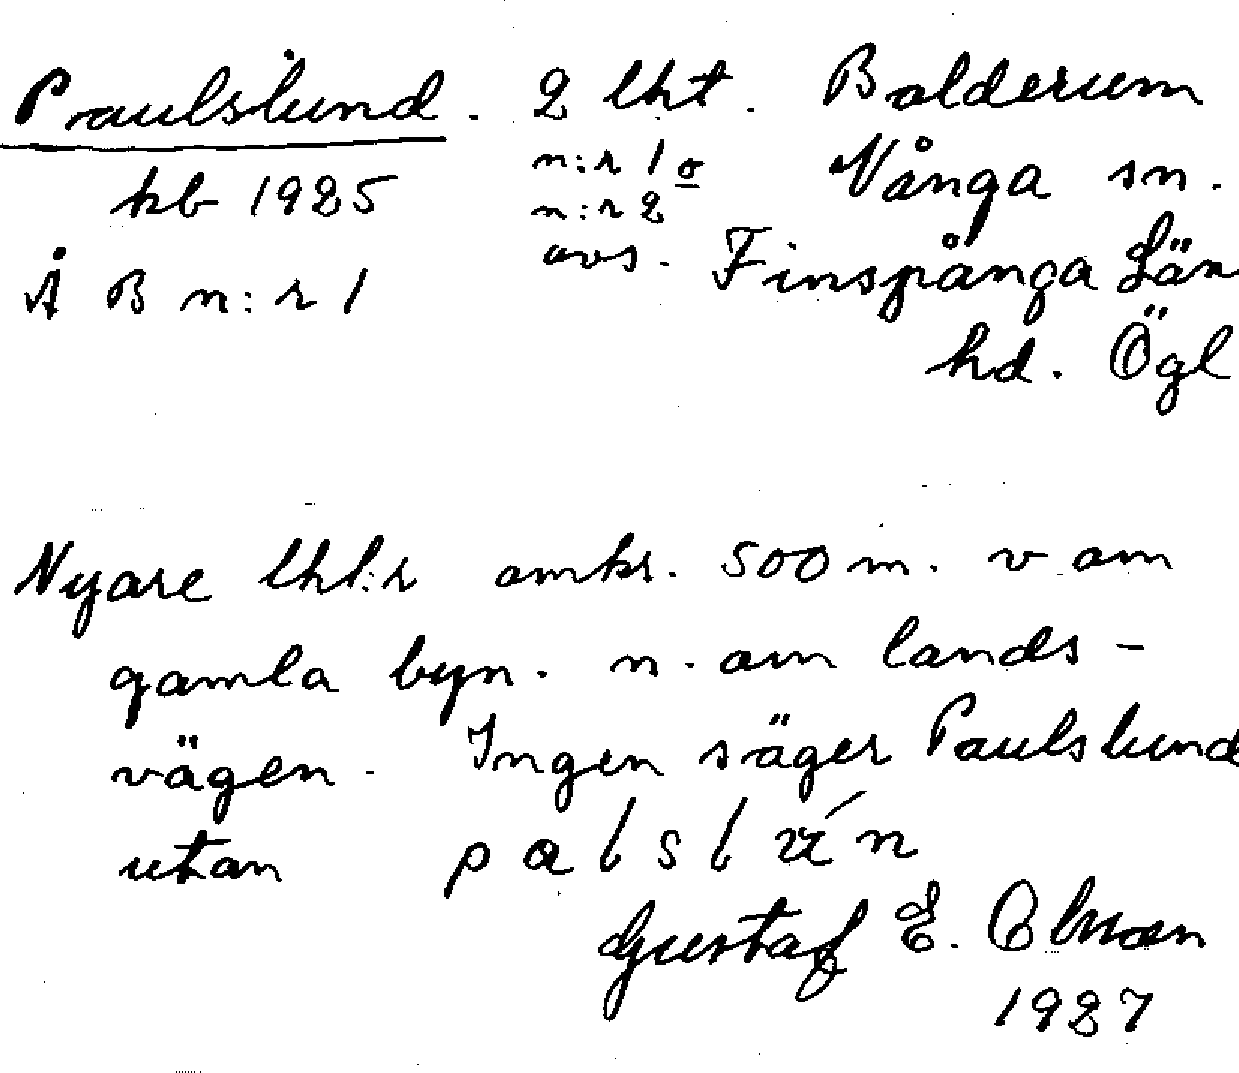 Paulslund. 2 lht. Bolderum
kb 1925 n:r 1 o Vånga sn.
n:r 2
Å B n:r 1 avs. Finspånga Län
hd. Ögl
Nyare lht:r omkr. 500 m. v om
gamla byn. n. om lands-
vägen. Ingen säger Paulslund
utan
Gustaf E.
1927